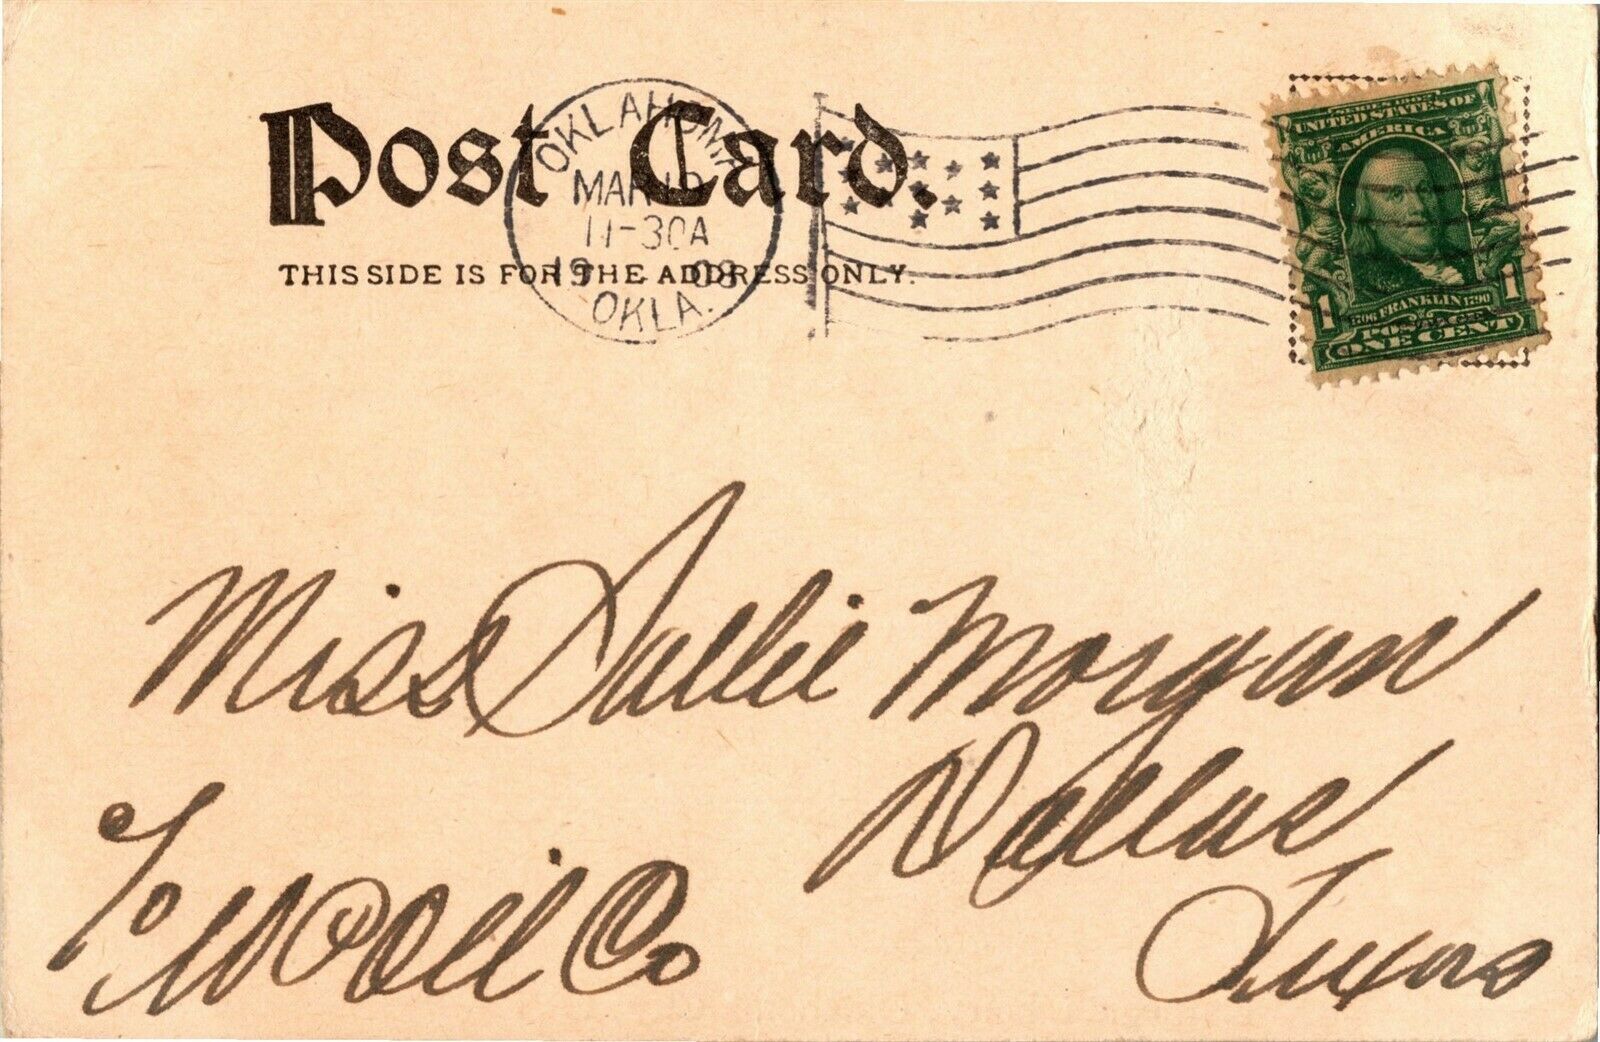 Post Card.
THIS SIDE IS FOR THE ADDRESS ONLY.
OKLAHOMA
MAR
11-30A
19 08
OKLA.
UNITED STATES OF
AMERICA
1 1706 FRANKLIN 1790 1
POSTAGE
ONE CENT
Miss Sallie Morgan
Dallas
Texas
Co